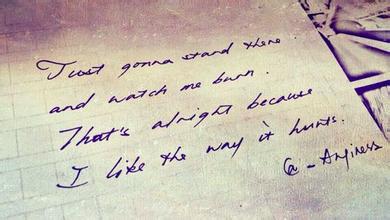 Just gonna stand there.
and watch me burn.
That's alright because
I like the way it hurts.
@-Anginess